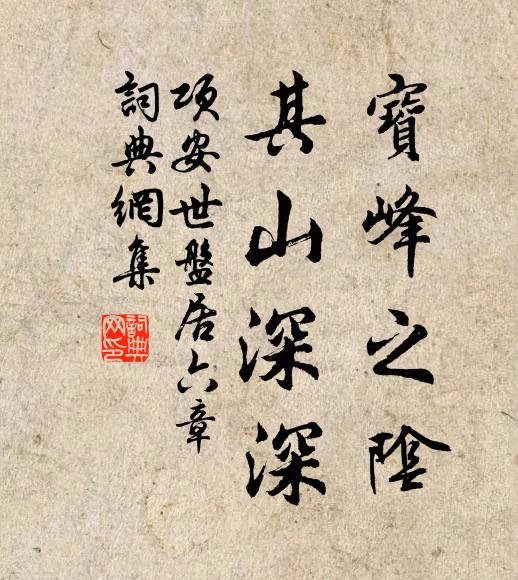 寶峰之陰
其山深深
項安世盤居六章
詞典網集
詞典网印